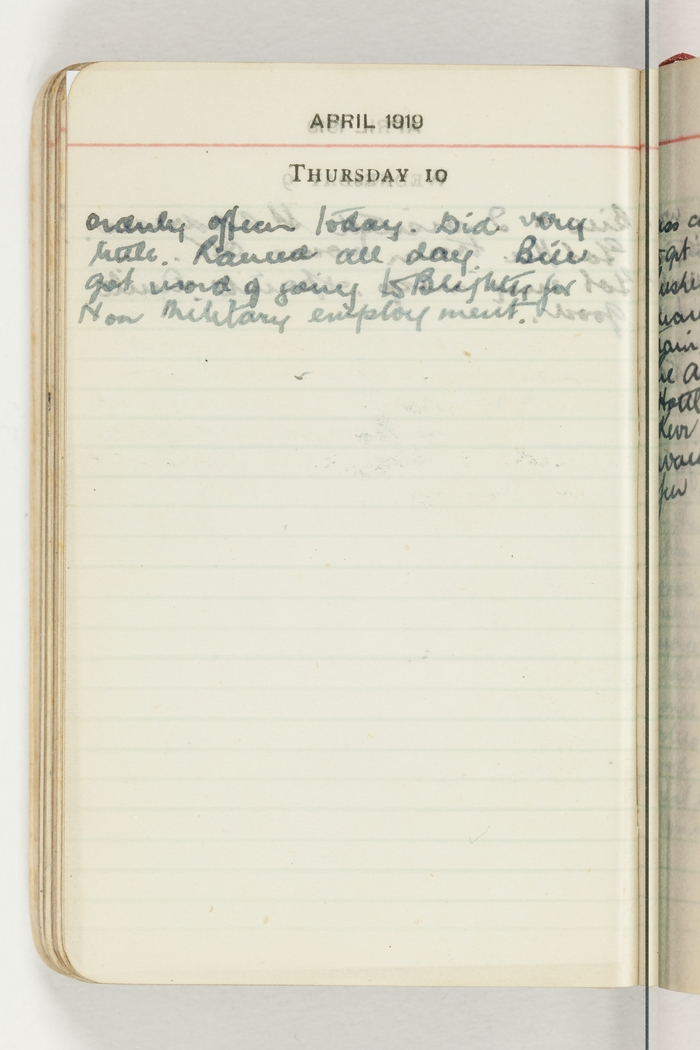 APRIL 1919
THURSDAY 10
orderly officer today. Did very
little. Rained all day Bill
got word of going to Blighty for
Non Military employment.